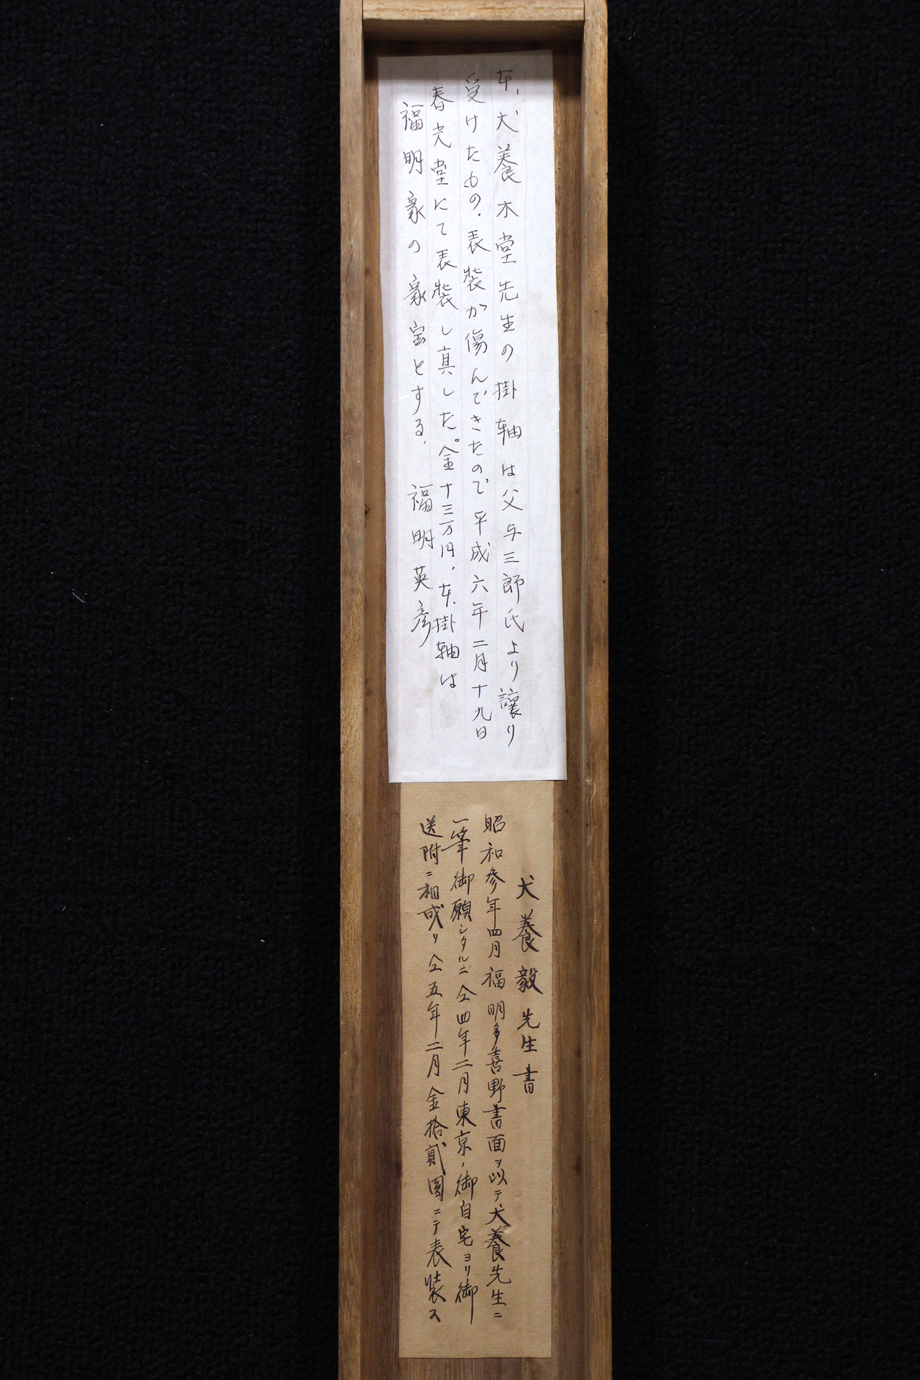 本、犬養木堂先生の掛軸は父与三郎氏より譲り
受けたもの。表装が傷んできたので平成六年二月十九日
春光堂にて表装し真した。金十三万円。本掛軸は
福明家の家宝とする。　福明英彦
犬養毅先生書
昭和参年四月福明多喜野書面ヲ以テ犬養先生ニ
一筆御願シタルニ仝四年二月東京ノ御自宅ヨリ御
送附ニ相成リ仝五年二月金拾貳圓ニテ表装ス